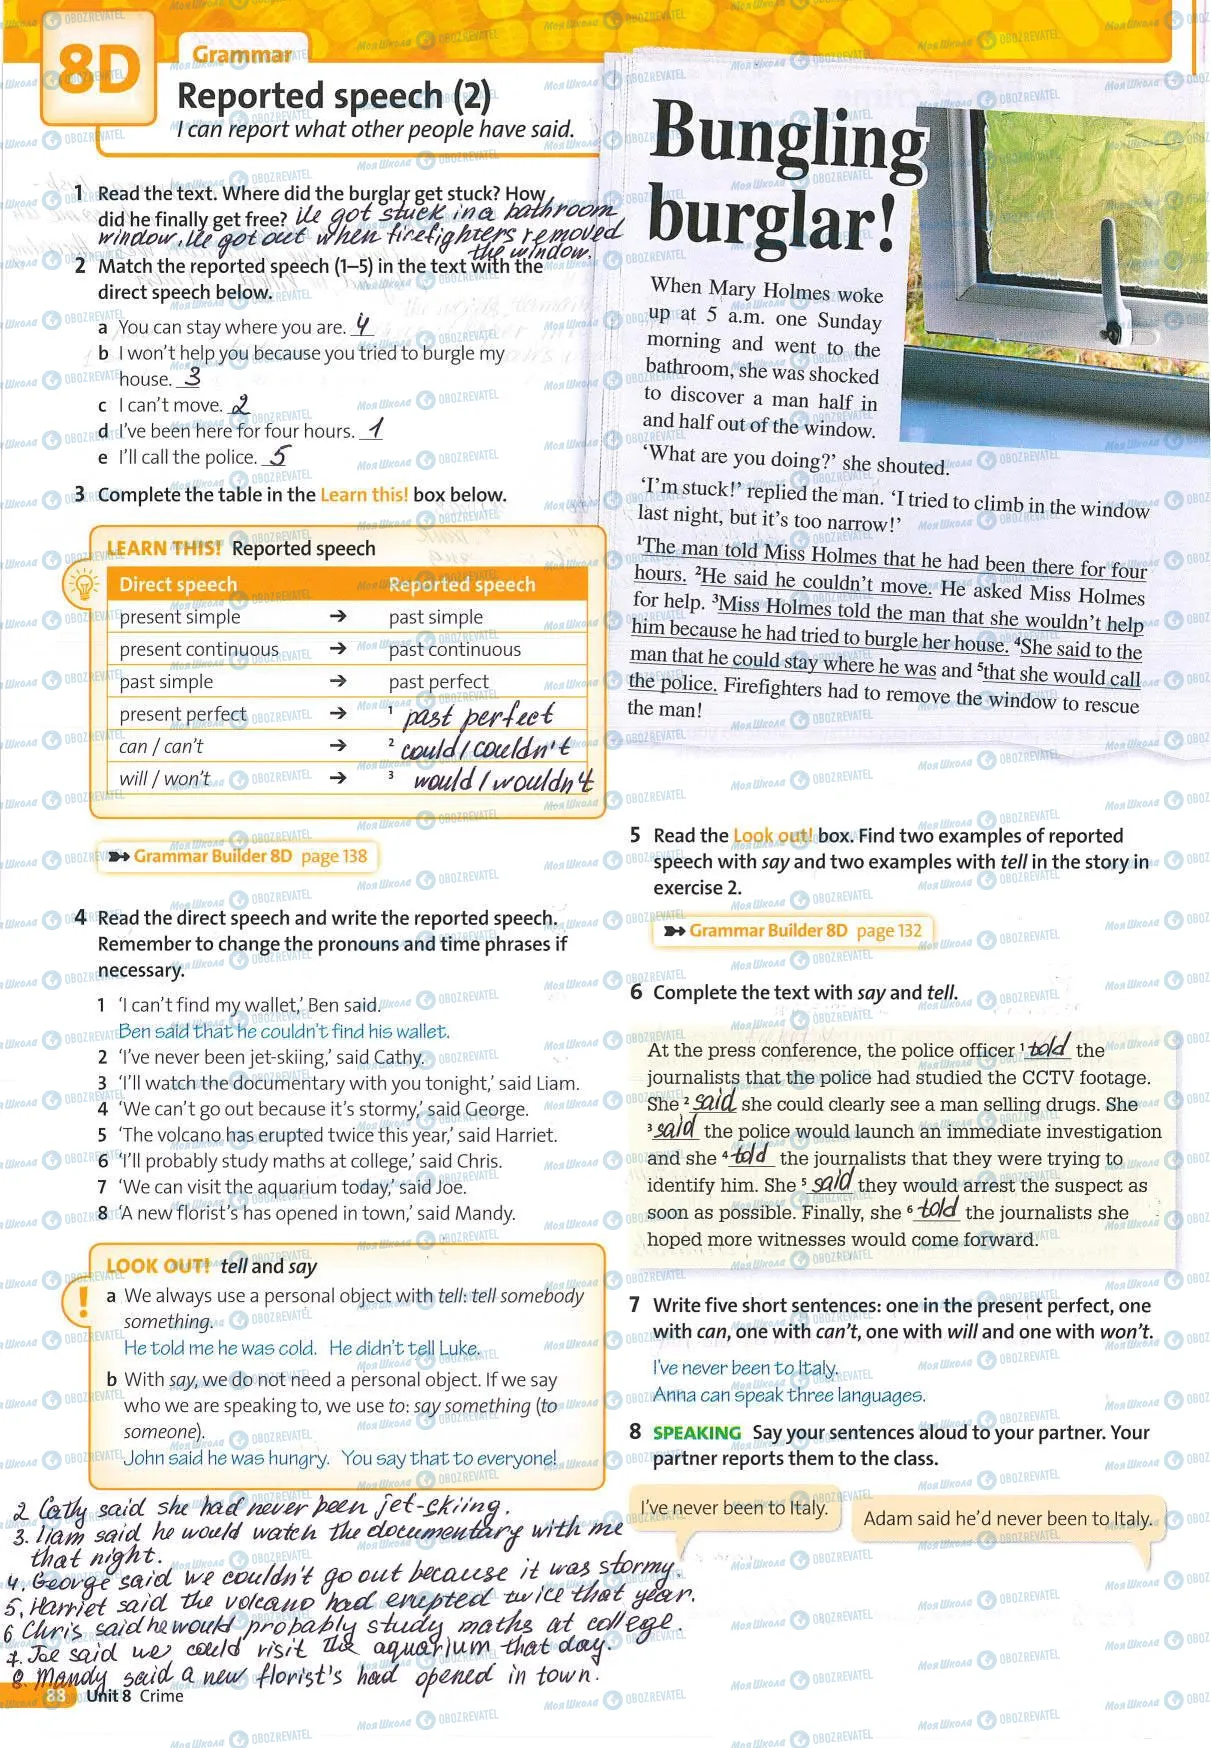 8D
Grammar
Reported speech (2)
I can report what other people have said.
1 Read the text. Where did the burglar get stuck? How
did he finally get free? He got stuck in a bathroom
window. He got out when firefighters removed
the window.
2 Match the reported speech (1–5) in the text with the
direct speech below.
a You can stay where you are. 4
b I won't help you because you tried to burgle my
house. 3
c I can't move. 2
d I've been here for four hours. 1
e I'll call the police. 5
3 Complete the table in the Learn this! box below.
LEARN THIS! Reported speech
Direct speech Reported speech
present simple → past simple
present continuous → past continuous
past simple → past perfect
present perfect → 1 past perfect
can / can't → 2 could / couldn't
will / won't → 3 would / wouldn't
Grammar Builder 8D page 138
4 Read the direct speech and write the reported speech.
Remember to change the pronouns and time phrases if
necessary.
1 'I can't find my wallet,' Ben said.
Ben said that he couldn't find his wallet.
2 'I've never been jet-skiing,' said Cathy.
3 'I'll watch the documentary with you tonight,' said Liam.
4 'We can't go out because it's stormy,' said George.
5 'The volcano has erupted twice this year,' said Harriet.
6 'I'll probably study maths at college,' said Chris.
7 'We can visit the aquarium today,' said Joe.
8 'A new florist's has opened in town,' said Mandy.
LOOK OUT! tell and say
a We always use a personal object with tell: tell somebody
something.
He told me he was cold. He didn't tell Luke.
b With say, we do not need a personal object. If we say
who we are speaking to, we use to: say something (to
someone).
John said he was hungry. You say that to everyone!
2. Cathy said she had never been jet-skiing.
3. Liam said he would watch the documentary with me
that night.
4. George said we couldn't go out because it was stormy.
5. Harriet said the volcano had erupted twice that year.
6 Chris said he would probably study maths at college.
7. Joe said we could visit the aquarium that day.
8. Mandy said a new florist's had opened in town.
88 Unit 8 Crime
Bungling
burglar!
When Mary Holmes woke
up at 5 a.m. one Sunday
morning and went to the
bathroom, she was shocked
to discover a man half in
and half out of the window.
'What are you doing?' she shouted.
'I'm stuck!' replied the man. 'I tried to climb in the window
last night, but it's too narrow!'
1The man told Miss Holmes that he had been there for four
hours. 2He said he couldn't move. He asked Miss Holmes
for help. 3Miss Holmes told the man that she wouldn't help
him because he had tried to burgle her house. 4She said to the
man that he could stay where he was and 5that she would call
the police. Firefighters had to remove the window to rescue
the man!
5 Read the Look out! box. Find two examples of reported
speech with say and two examples with tell in the story in
exercise 2.
Grammar Builder 8D page 132
6 Complete the text with say and tell.
At the press conference, the police officer 1 told the
journalists that the police had studied the CCTV footage.
She 2 said she could clearly see a man selling drugs. She
3 said the police would launch an immediate investigation
and she 4 told the journalists that they were trying to
identify him. She 5 said they would arrest the suspect as
soon as possible. Finally, she 6 told the journalists she
hoped more witnesses would come forward.
7 Write five short sentences: one in the present perfect, one
with can, one with can't, one with will and one with won't.
I've never been to Italy.
Anna can speak three languages.
8 SPEAKING Say your sentences aloud to your partner. Your
partner reports them to the class.
I've never been to Italy.
Adam said he'd never been to Italy.
МояШкола OBOZREVATEL